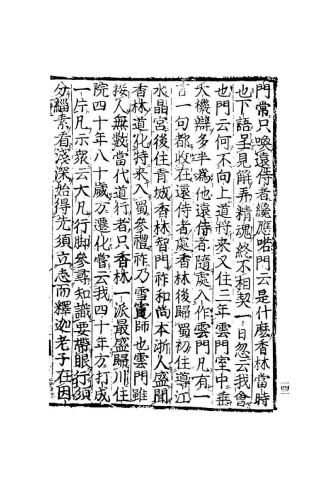 門常只喚遠侍者纔應喏門云是什麽香林當時
也下語呈見解弄精魂終不相契一日忽云我會
也門云何不向上道將來又住三年雲門室中垂
大機辯多半為他遠侍者隨處入作雲門凡有一
言一句都收在遠侍者處香林後歸蜀初住導江
水晶宮後住青城香林智門祚和尚本浙人盛聞
香林道化特來入蜀參禮祚乃雪竇師也雲門雖
接人無數當代道行者只香林一派最盛歸川住
院四十年八十歲方遷化嘗云我四十年方打成
一片凡示衆云大凡行脚參尋知識要帶眼行須
分緇素看淺深始得先須立志而釋迦老子在因
一四